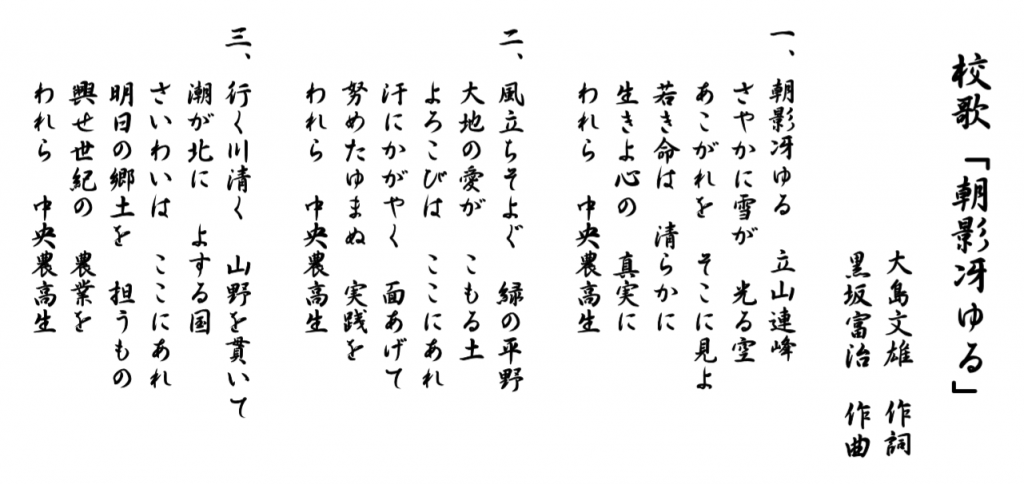 校歌「朝影冴ゆる」
大島文雄 作詞
黒坂富治 作曲
一、朝影冴ゆる 立山連峰
さやかに雪が 光る空
あこがれを そこに見よ
若き命は 清らかに
生きよ心の 真実に
われら 中央農高生
二、風立ちそよぐ 緑の平野
大地の愛が こもる土
よろこびは ここにあれ
汗にかがやく 面あげて
努めたゆまぬ 実践を
われら 中央農高生
三、行く川清く 山野を貫いて
潮が北に よする国
さいわいは ここにあれ
明日の郷土を 担うもの
興せ世紀の 農業を
われら 中央農高生